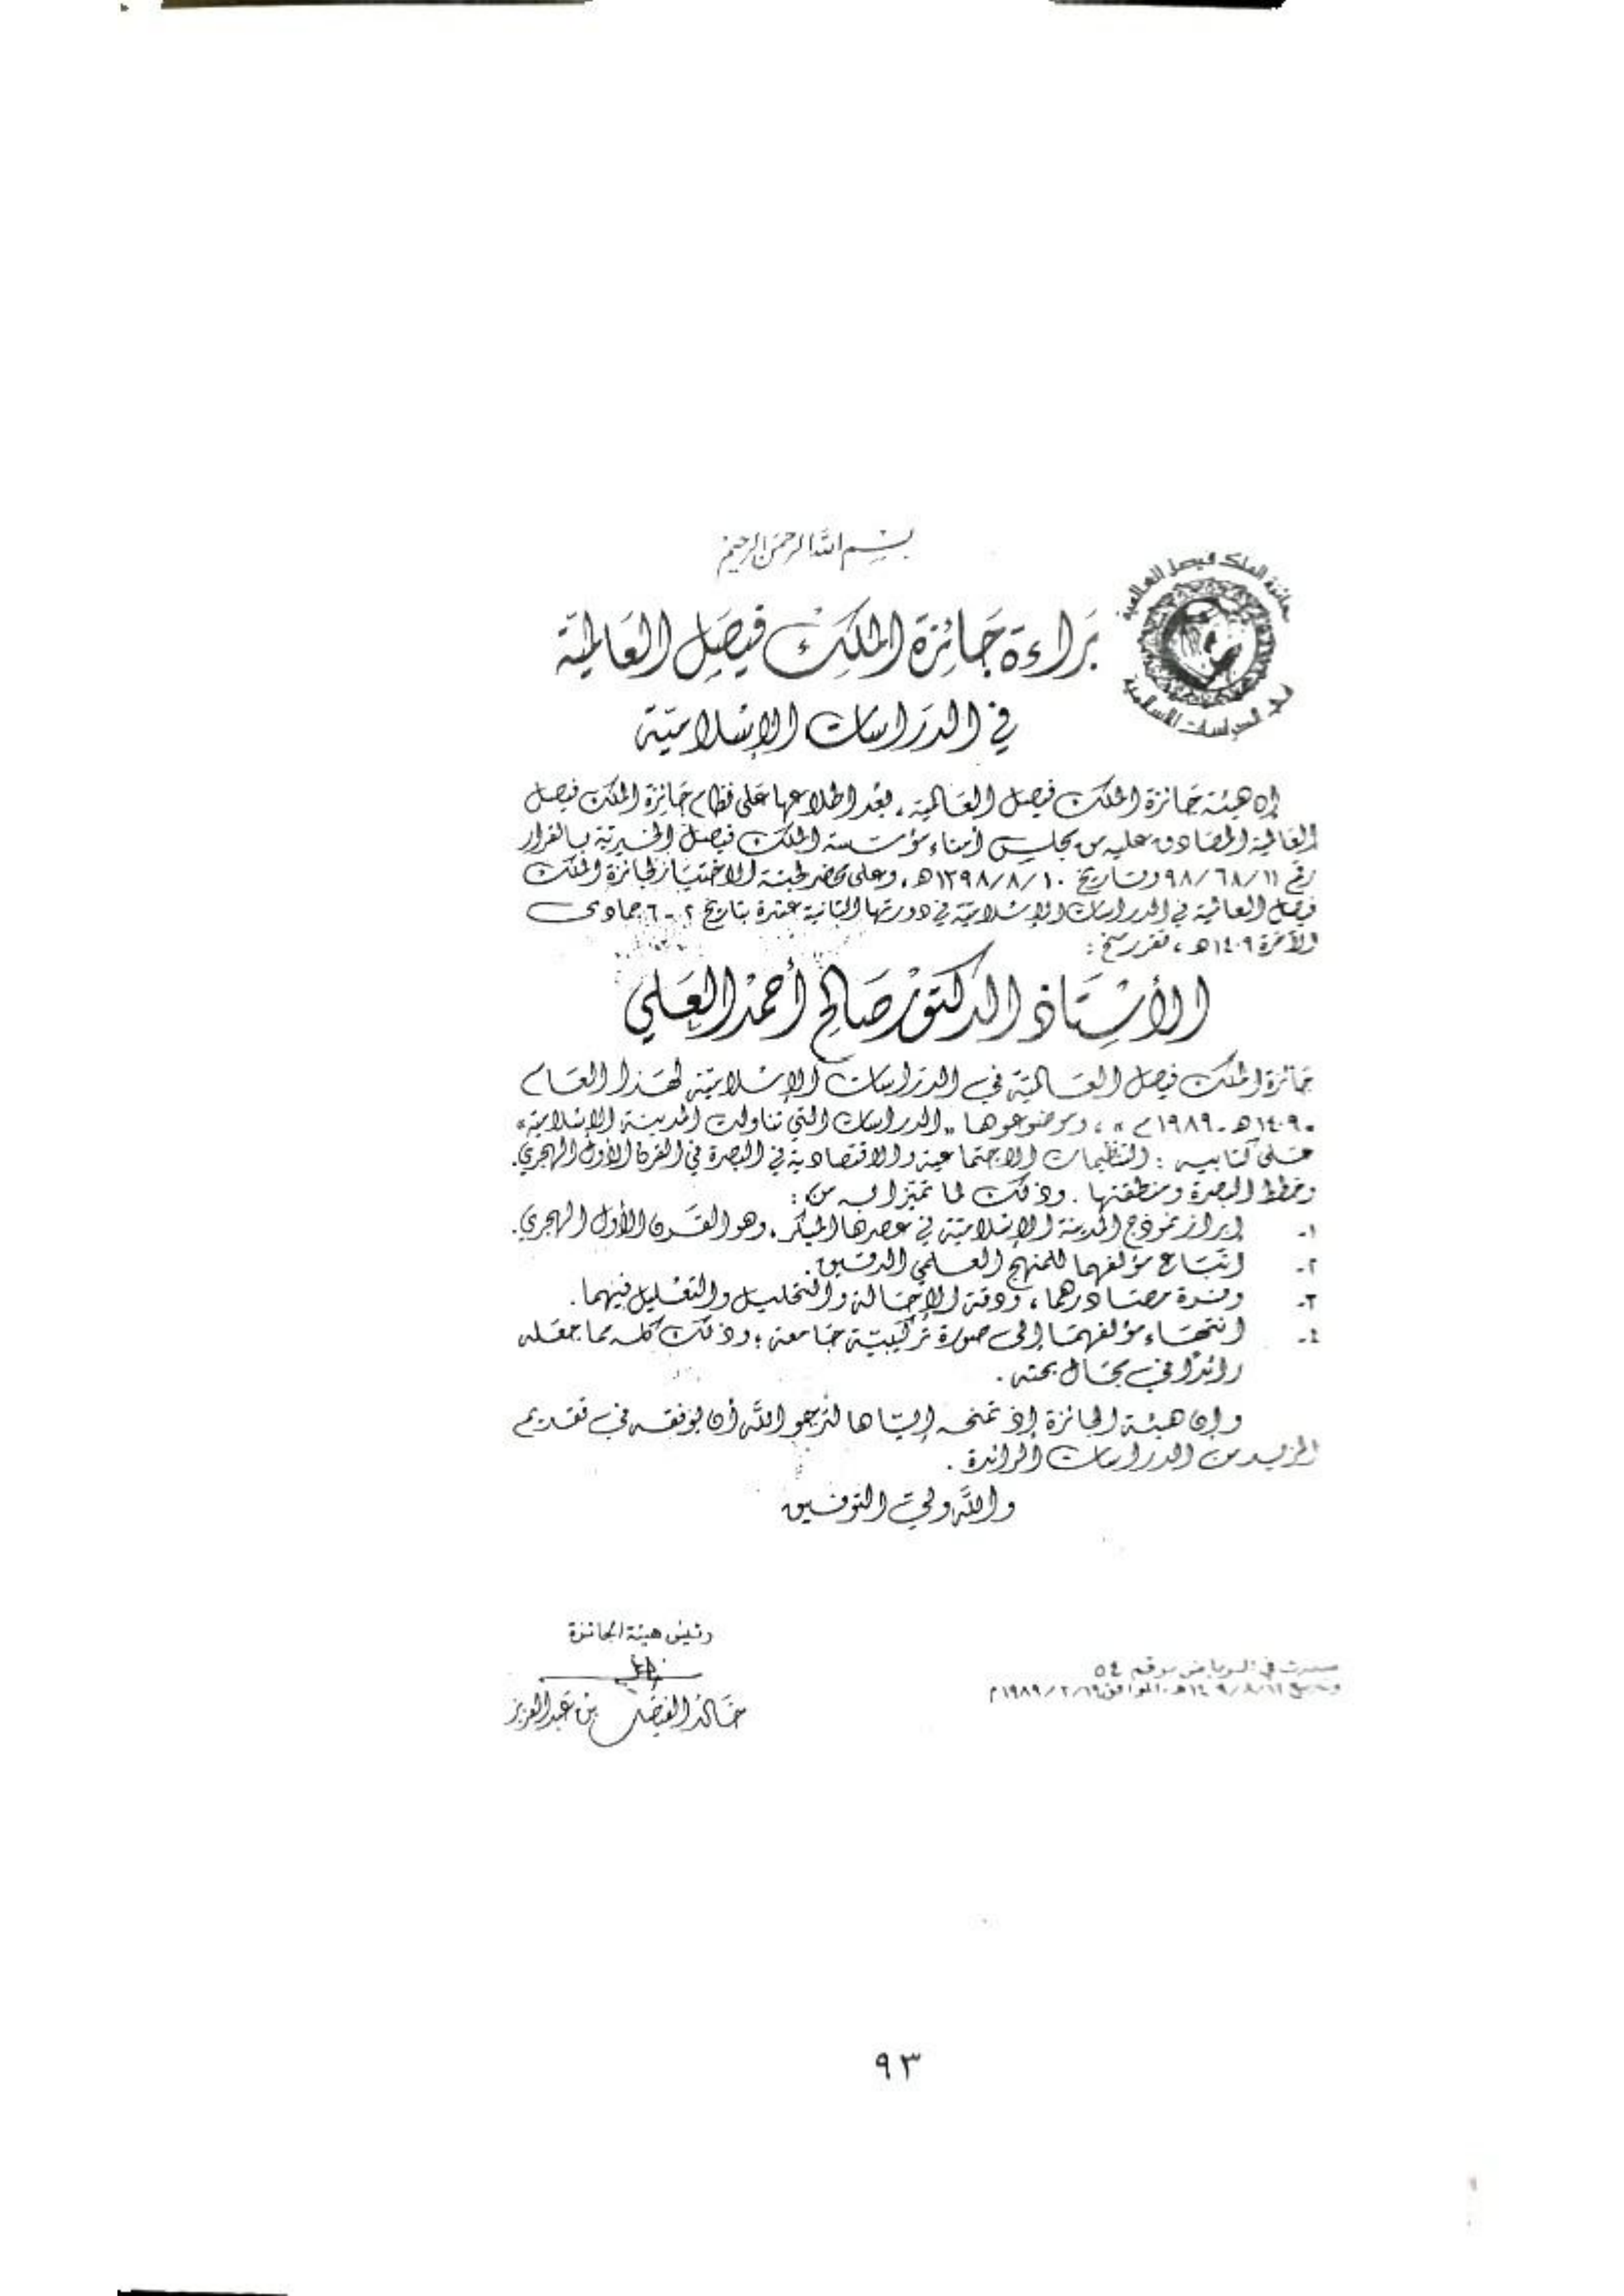 بسم الله الرحمن الرحيم
جائزة الملك فيصل العالمية
في الدراسات الإسلامية
بَراءة جَائزة الملك فيصَل العَالميَّة
في الدّرَاسَات الإسْلاميَّة
إن هيئة جَائزة الملك فيصل العَالمية، بعْد اطلاعها عَلى نظام جَائزة الملك فيصل
العَالمية المصَادق عليه من مجلس أمناء مؤسَّسة الملك فيصَل الخيريّة بالقرار
رقم ٩٨/٦٨/١١ وتاريخ ١٣٩٨/٨/١٠هـ، وعلى محضر لجنة الاختيَار لجائزة الملك
فيصَل العالمية في الدراسَات الإسْلاميَّة في دورتها الثانية عشرة بتاريخ ٢-٦ جمادى
الآخرة ١٤٠٩هـ، تقرر منح:
الأسْتَاذ الدكتوْر صَالح أحمدْ العَلي
جَائزة الملك فيصل العَالميّة في الدّراسات الإسْلاميّة لهَذا العَام
١٤٠٩هـ ـ ١٩٨٩م، وموضوعها "الدراسات التي تناولت المدينة الإسْلامية"
عَلى كتابيه: التنظيمات الاجتماعية والاقتصادية في البصرة في القرن الأول الهجري.
وخطط البصرة ومنطقتها. وذلك لما تميّزا به من:
١- إبراز نموذج المدينة الإسْلاميّة في عصرها المبكر، وهو القَرن الأول الهجري.
٢- اتبَاع مؤلفهما للمنهج العلمي الدقيق.
٣- وفرة مصَادرهما، ودقة الإحَالة والتحليل والتعْليل فيهما.
٤- انتهَاء مؤلفهمَا إلى صورة تركيبيّة جَامعة؛ وذلك كله مما جعَله
رائدًا في مجَال بحثه.
وإن هيئة الجائزة إذ تمنحه إيّاها لترجو الله أن يوفقه في تقديم
المزيد من الدراسات الرائدة.
والله وليّ التوفيق
رئيس هيئة الجائزة
خَالد الفيصَل بن عَبد العزيز
في الرياض برقم ٥٤
الموافق ١٩٨٩/٢/ م
٩٣